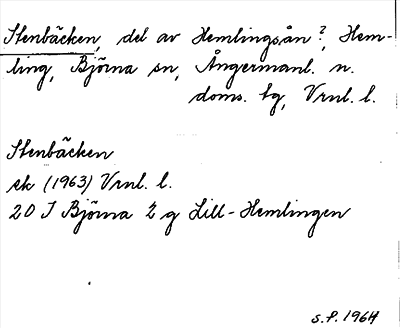 Stenbäcken, del av Hemlingsån?, Hem-
ling, Björna sn, Ångermanl. n.
doms. tg, Vrnl. l.
Stenbäcken
ek (1963) Vrnl. l.
20 J Björna 2 g Lill-Hemlingen
S.P. 1964